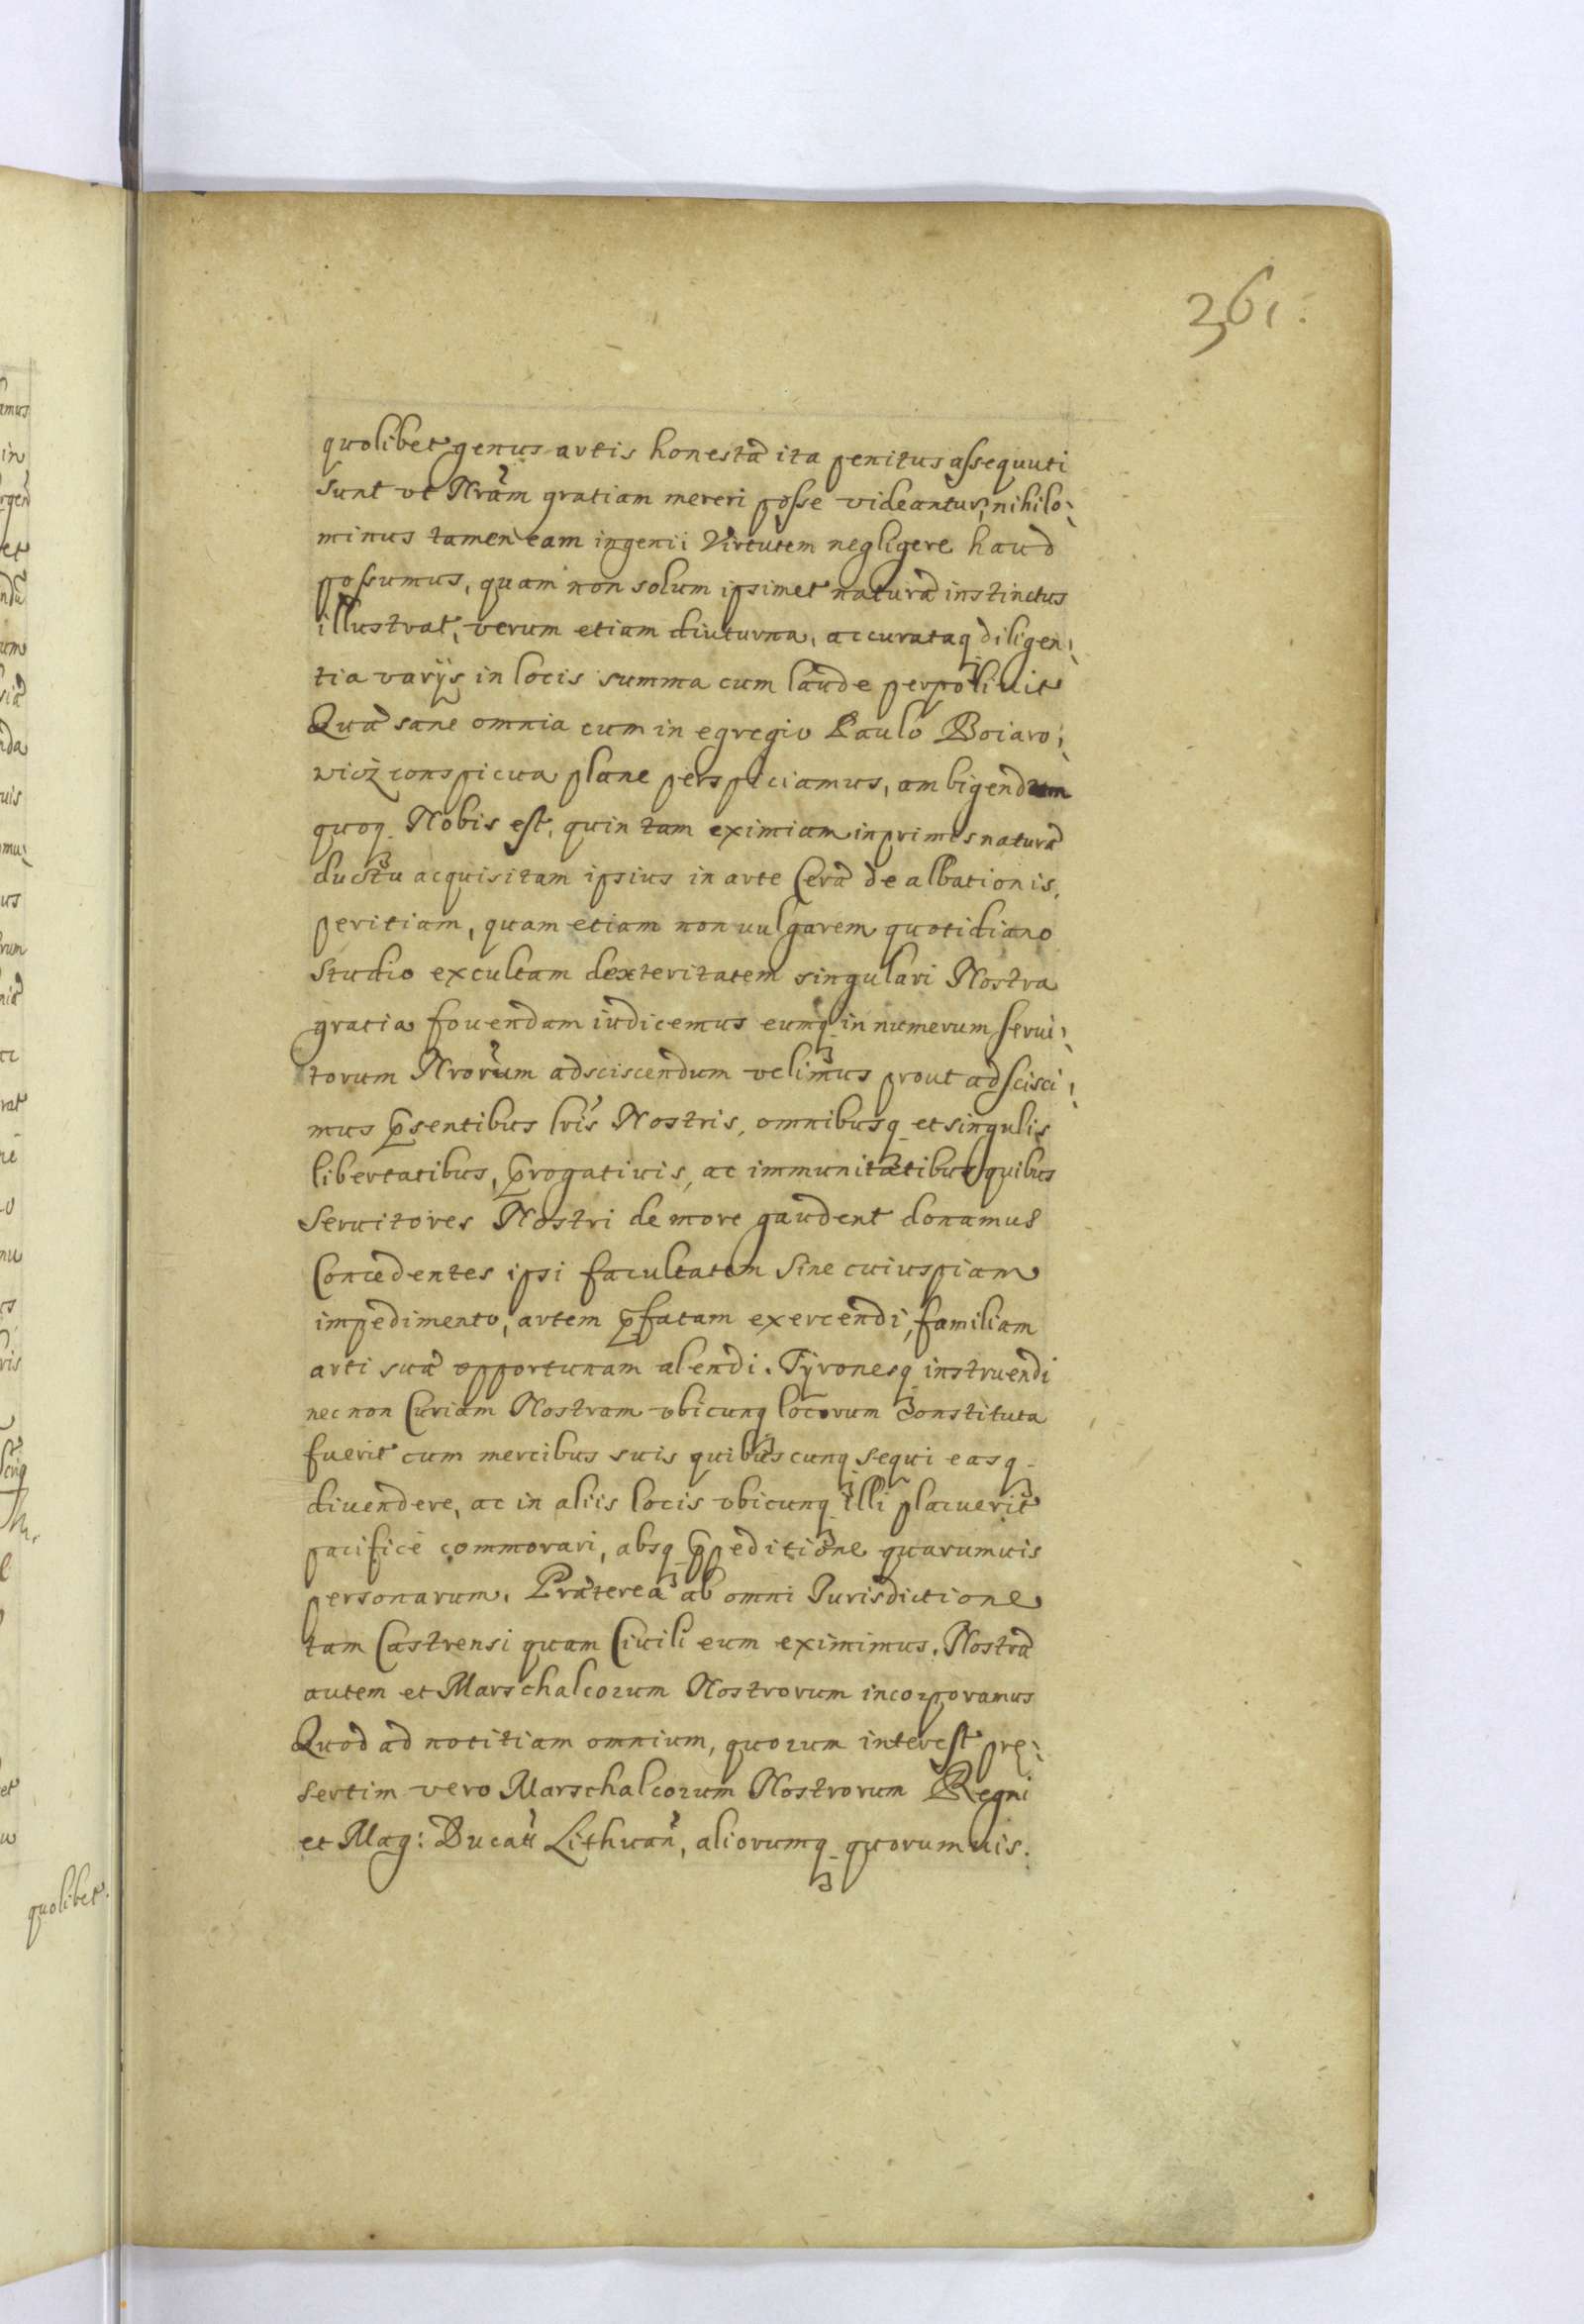 361.
quolibet genus artis honestæ ita penitus assequuti
sunt vt Nrãm gratiam mereri posse videantur, nihilo:
minus tamen eam ingenii Virtutem negligere haud
possumus, quam non solum ipsimet naturæ instinctus
illustrat, verum etiam diuturna, accurataq₃ diligen:
tia varijs in locis summa cum laude perpoliuit
Quæ sane omnia cum in egregio Paulo Boiaro:
wicz conspicua plane perspiciamus, ambigendum
quoq₃ Nobis est, quin tam eximiam inprimis naturæ
ductu acquisitam ipsius in arte Ceræ dealbationis,
peritiam, quam etiam non uulgarem quotidiano
studio excultam dexteritatem singulari Nostra
gratia fouendam iudicemus eumq₃ in numerum serui:
torum Nrorũm adsciscendum velimus prout adscisci:
mus p̃sentibus lris̃ Nostris, omnibusq₃ et singulis
libertatibus, p̃rogatiuis, ac immunitatibus quibus
Seruitores Nostri de more gaudent donamus
Concedentes ipsi facultatem sine cuiuspiam
impedimento, artem p̃fatam exercendi, familiam
arti suæ opportunam alendi. Tyronesq₃ instruendi
nec non Curiam Nostram vbicunq₃ locorum constituta
fuerit cum mercibus suis quibuscunq₃ sequi easq₃
diuendere, ac in aliis locis vbicunq₃ illi placuerit
pacificè commorari, absq₃ p̃peditione quarumuis
personarum. Prætereà ab omni Jurisdictione
tam Castrensi quam Ciuili eum eximimus. Nostræ
autem et Marschalcorum Nostrorum incorporamus
Quod ad notitiam omnium, quorum interest præ:
sertim vero Marschalcorum Nostrorum Regni
et Mag: Ducatũ Lithuañ, aliorumq₃ quorumuis.
quolibet.